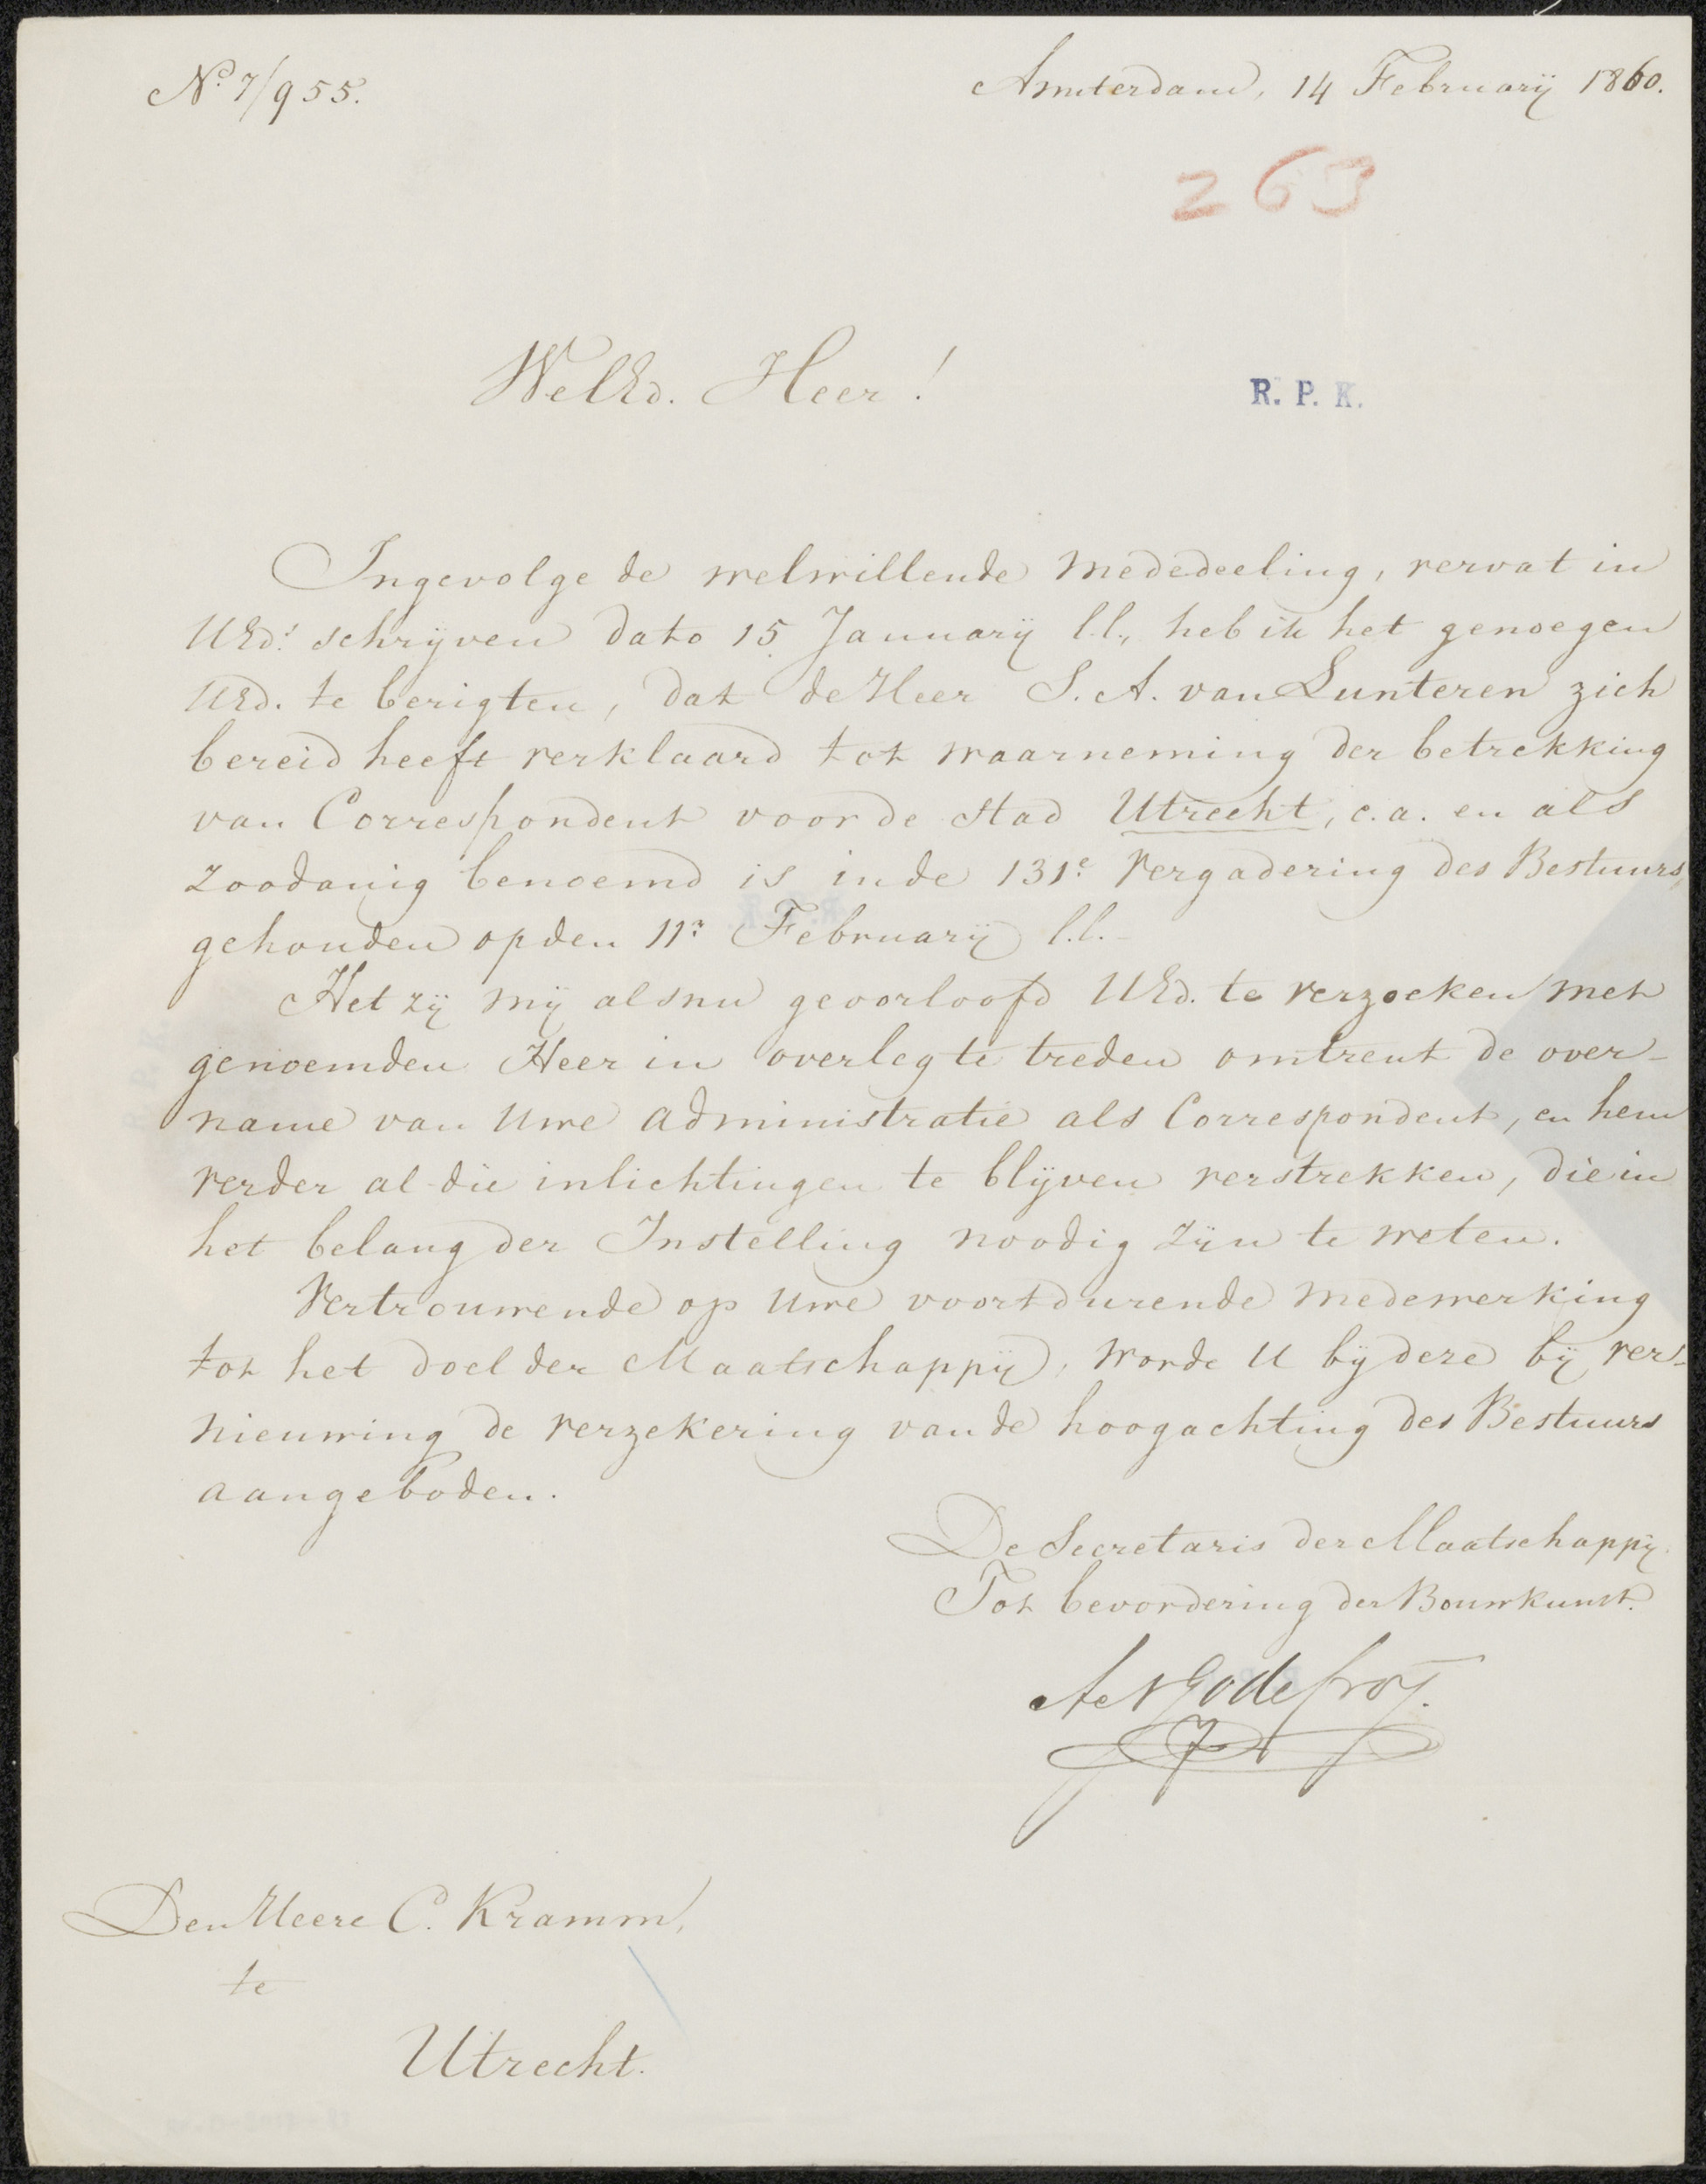 No. 7/955.
Amsterdam, 14 Februarij 1860.
263
WelEd. Heer!
R. P. K.
Ingevolge de welwillende mededeeling, vervat in
UEds. schrijven dato 15 Januarij l.l., heb ik het genoegen
UEd. te berigten, dat de Heer S. A. van Lunteren zich
bereid heeft verklaard tot waarneming der betrekking
van Correspondent voor de stad Utrecht, c.a. en als
zoodanig benoemd is in de 131e. Vergadering des Bestuurs,
gehouden op den 11n. Februarij l.l.-
Het zij mij alsnu geoorloofd UEd. te verzoeken met
genoemden Heer in overleg te treden omtrent de over-
name van Uwe administratie als Correspondent, en hem
verder al die inlichtingen te blijven verstrekken, die in
het belang der Instelling noodig zijn te weten.
Vertrouwende op Uwe voortdurende medewerking
tot het doel der Maatschappij, worde U bij deze bij ver-
nieuwing de verzekering van de hoogachting des Bestuurs
aangeboden.
De Secretaris der Maatschappij
Tot bevordering der Bouwkunst.
A N Godefroy.
Den Heere C. Kramm,
te
Utrecht.